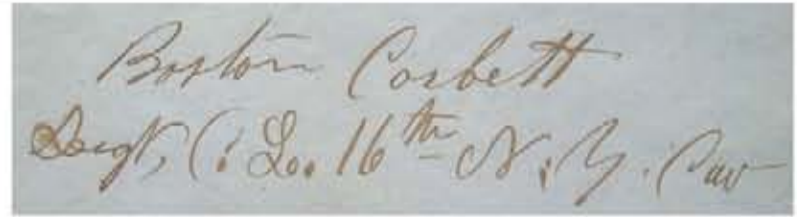 Boston Corbett
Sergt, C: L. 16th N. Y. Cav